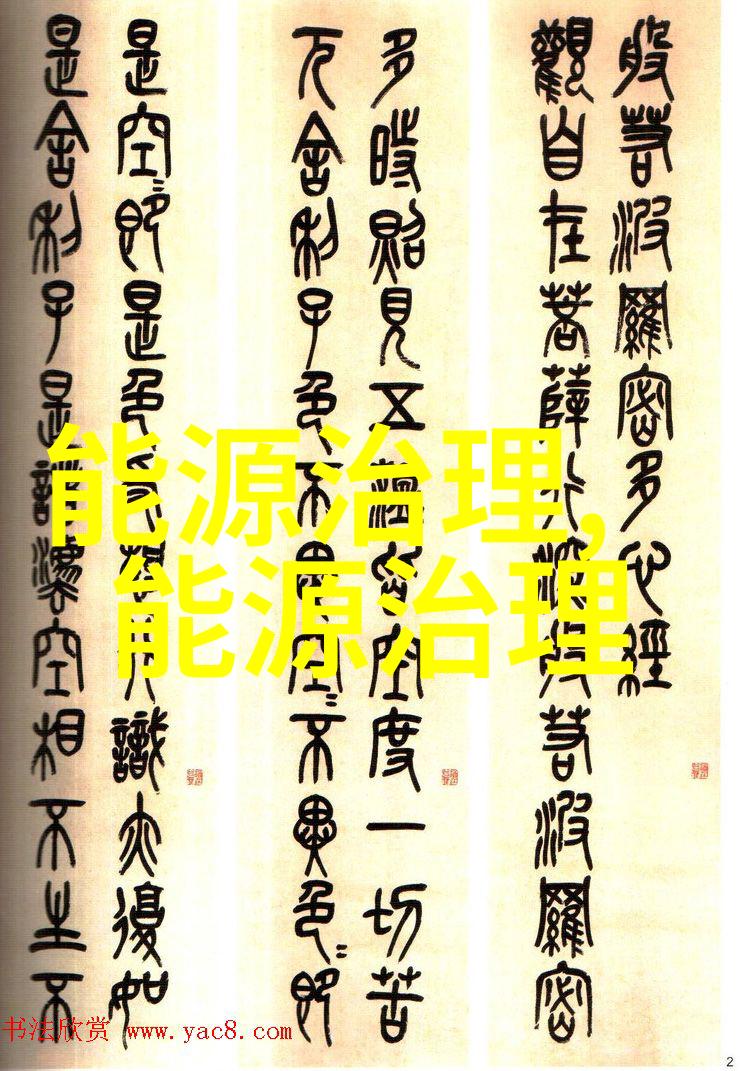 般若波羅密多心經
觀自在菩薩行深般若波羅密
多時照見五蘊皆空度一切苦
厄舍利子色不異空〻不異色〻即
是空〻即是色受想行識亦復如
是舍利子是諸法空相不生不
能源治理,
能源治理
书法欣赏 www.yac8.com
2